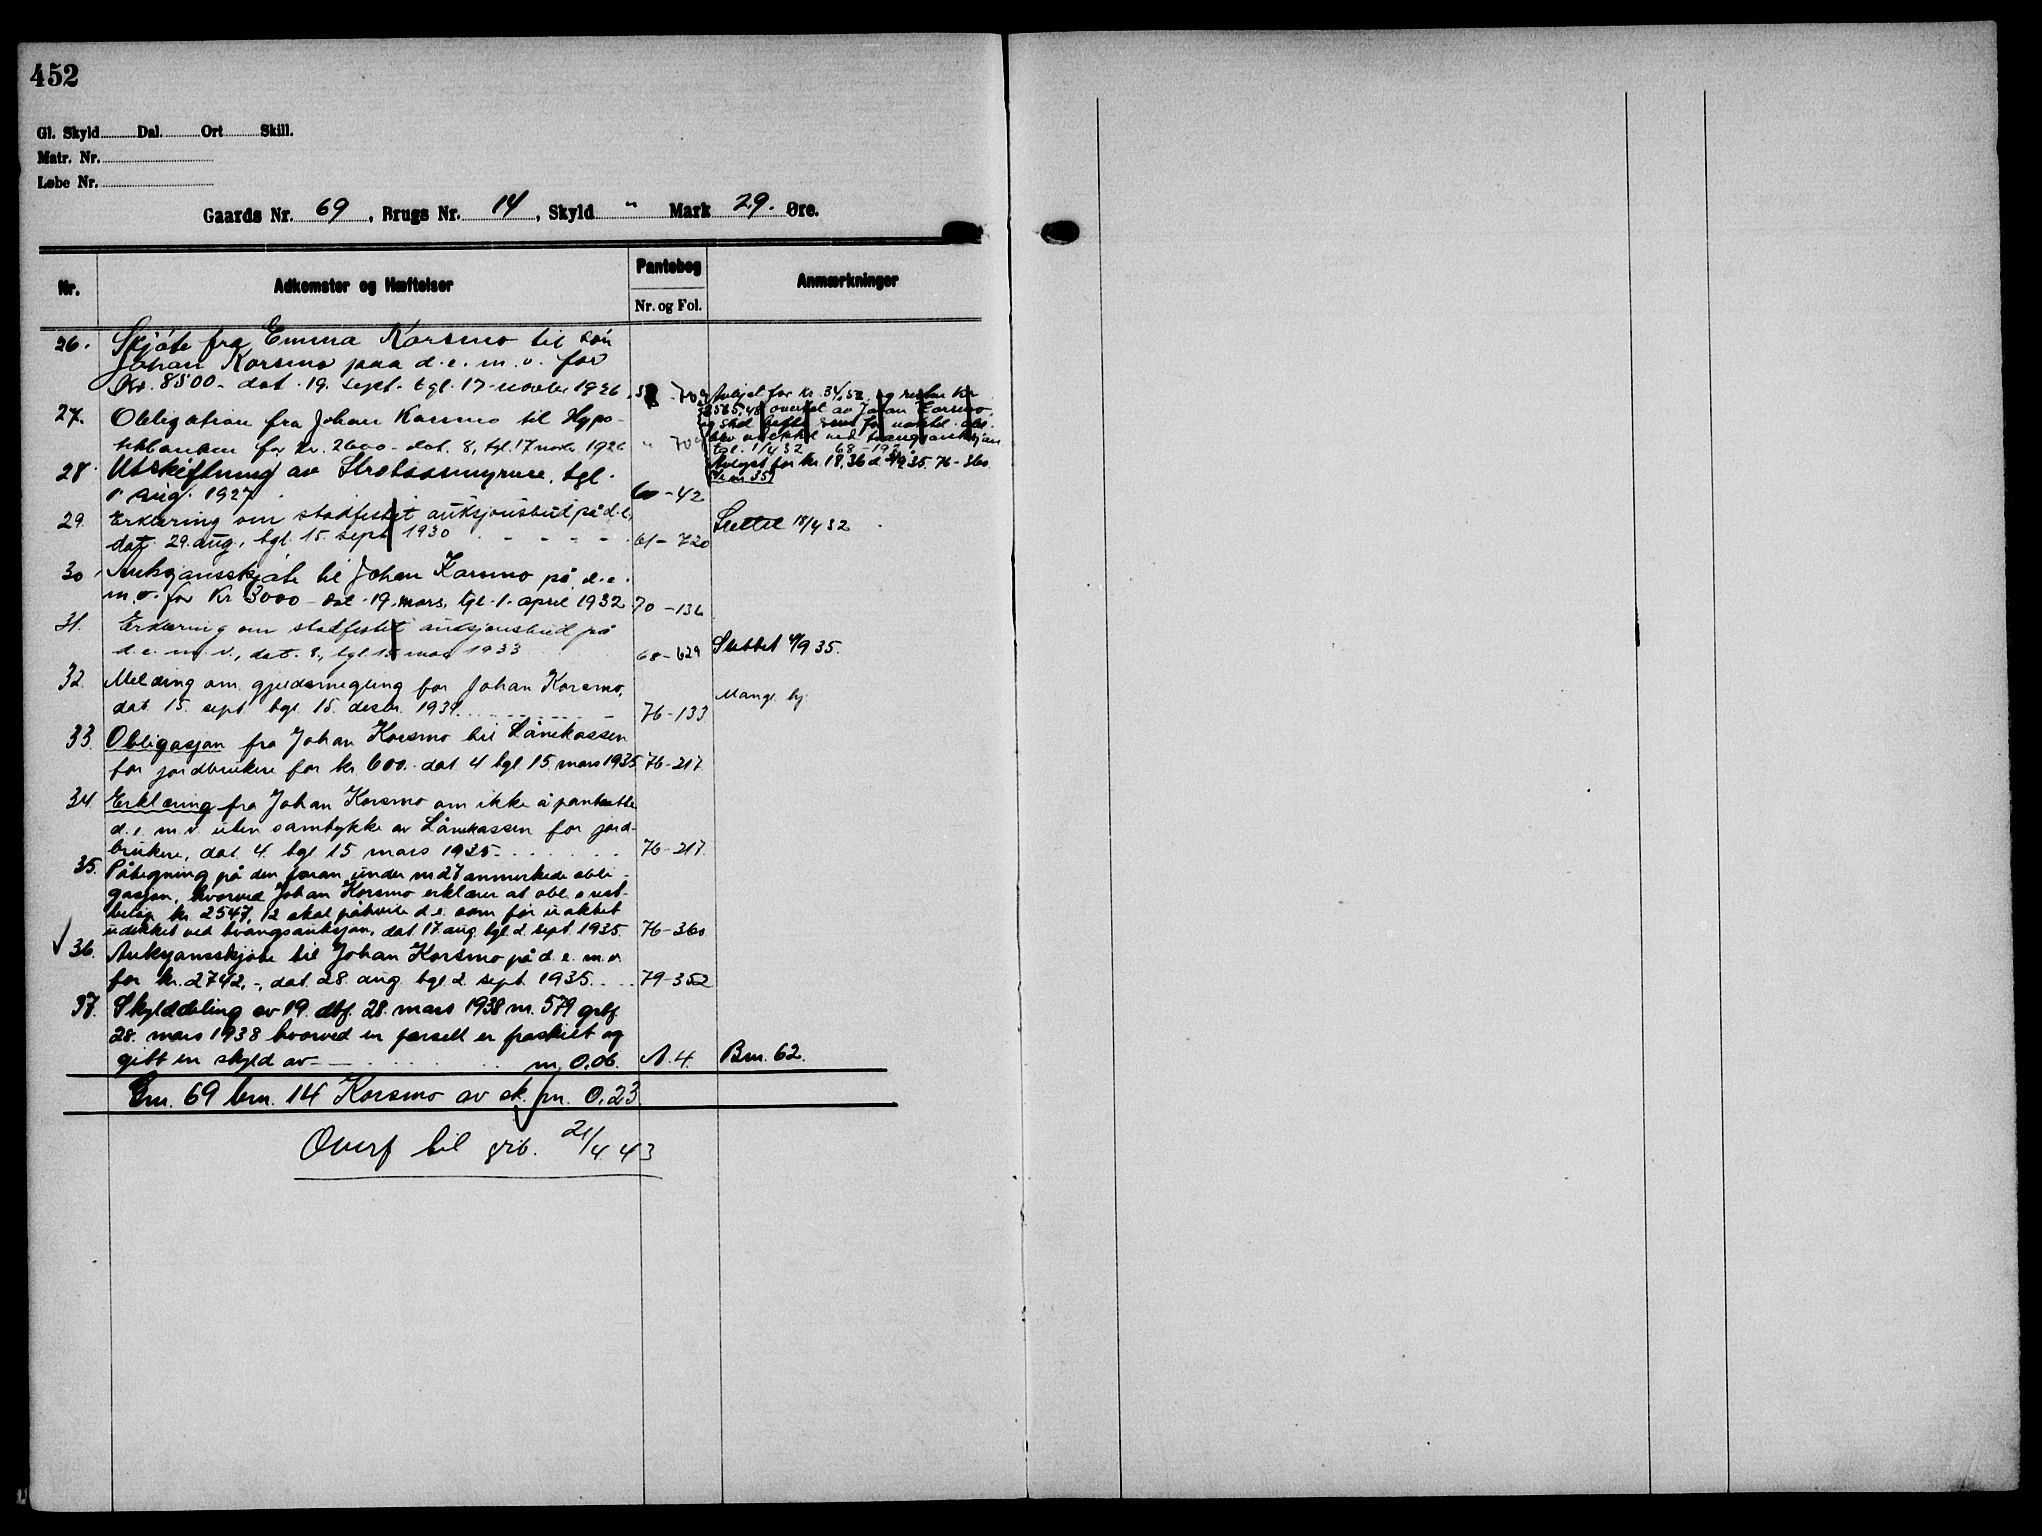 452
Gl. Skyld Dal. Ort Skill.
Matr. Nr.
Løbe Nr.
Gaards Nr. 69, Brugs Nr. 14, Skyld " Mark 29. Øre.
Nr. Adkomster og Hæftelser Pantebog Anmærkninger
Nr. og Fol.
26. Skjöte fra Emma Korsmo til sön
Johan Korsmo paa d.e.m.v. for
Kr. 8500 - dat. 19. sept. tgl. 17 novbr 1926
27. Obligation fra Johan Korsmo til Hypo-
tekbanken for kr. 2600 - dat. 8, tgl. 17 novbr. 1926 " 70
og restbr kr
2565,48 overtat av Johan Korsmo,
tgl. 1/4 32 68-192
Avlyst for kr. 18,36 d. 2/9 35. 76-360
(se nr 35)
28. Utskiftning av tgl.
1. aug. 1927 60-42
29. Erklæring om stadfestet auksjonsbud på d.e.
dat. 29. aug., tgl. 15. sept 1930 61-720 Slettet 18/4 32
30. Auksjonsskjöte til Johan Korsmo på d.e.
m.v. for kr 3000 - dat. 19. mars, tgl. 1. april 1932 70-136
31. Erklæring om stadfestet auksjonsbud på
d.e.m.v., dat. 8., tgl. 15 mai 1933 68-629 Slettet 4/9 35.
32. Melding om gjeldsmegling for Johan Korsmo,
dat. 15. sept tgl. 15. desbr. 1934 76-133 Mangl. hj.
33. Obligasjon fra Johan Korsmo til Lånekassen
for jordbrukere for kr. 600.- dat. 4 tgl. 15. mars 1935 76-217
34. Erklæring fra Johan Korsmo om ikke å pantsette
d.e.m.v. uten samtykke av Lånekassen for jord-
brukere, dat. 4. tgl. 15 mars 1935 76-217.
35. Påtegning på den foran under nr 27 anmerkede obli-
gasjon, hvorved Johan Korsmo erklærer at obl.s rest-
beløp kr. 2547,12 skal påhvile d.e. som før uaktet
udekket ved tvangsauksjon, dat. 17. aug. tgl. 2. sept. 1935. 76-360
36. Auksjonsskjöte til Johan Korsmo på d.e.m.v.
for kr. 2742,-, dat. 28. aug. tgl. 2. sept. 1935. 79-352
37. Skylddeling av 19. dbf. 28. mars 1938 nr. 579 grbf.
28. mars 1938 hvorved en parsell er fraskilt og
gitt en skyld av m. 0,06. A.4. Bnr. 62.
Gnr. 69 bnr. 14 Korsmo av sk. m. 0,23
Overf til grb. 21/4 43